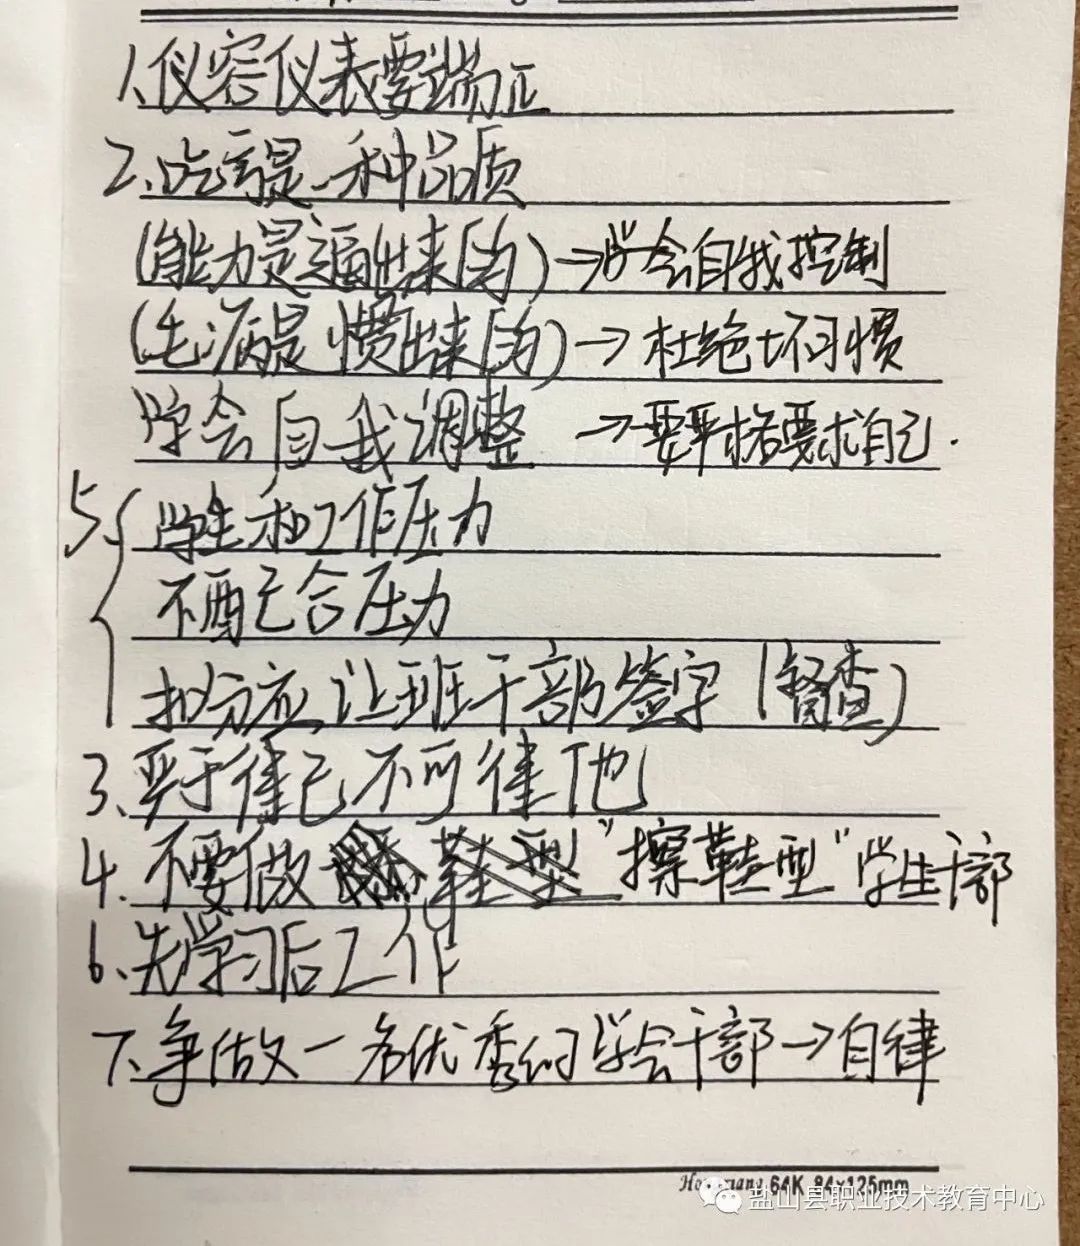 1、仪容仪表要端正
2、吃亏是一种品质
(能力是逼出来的)→学会自我控制
(毛病是惯出来的)→杜绝坏习惯
学会自我调整 →要严格要求自己.
5、学生和工作压力
不配合压力
扣分应让班干部签字(督查)
3、严于律己不可律他
4、不要做 "擦鞋型"学生干部
6、先学习后工作
7、争做一名优秀的学会干部→自律
64K 84×125mm
盐山县职业技术教育中心